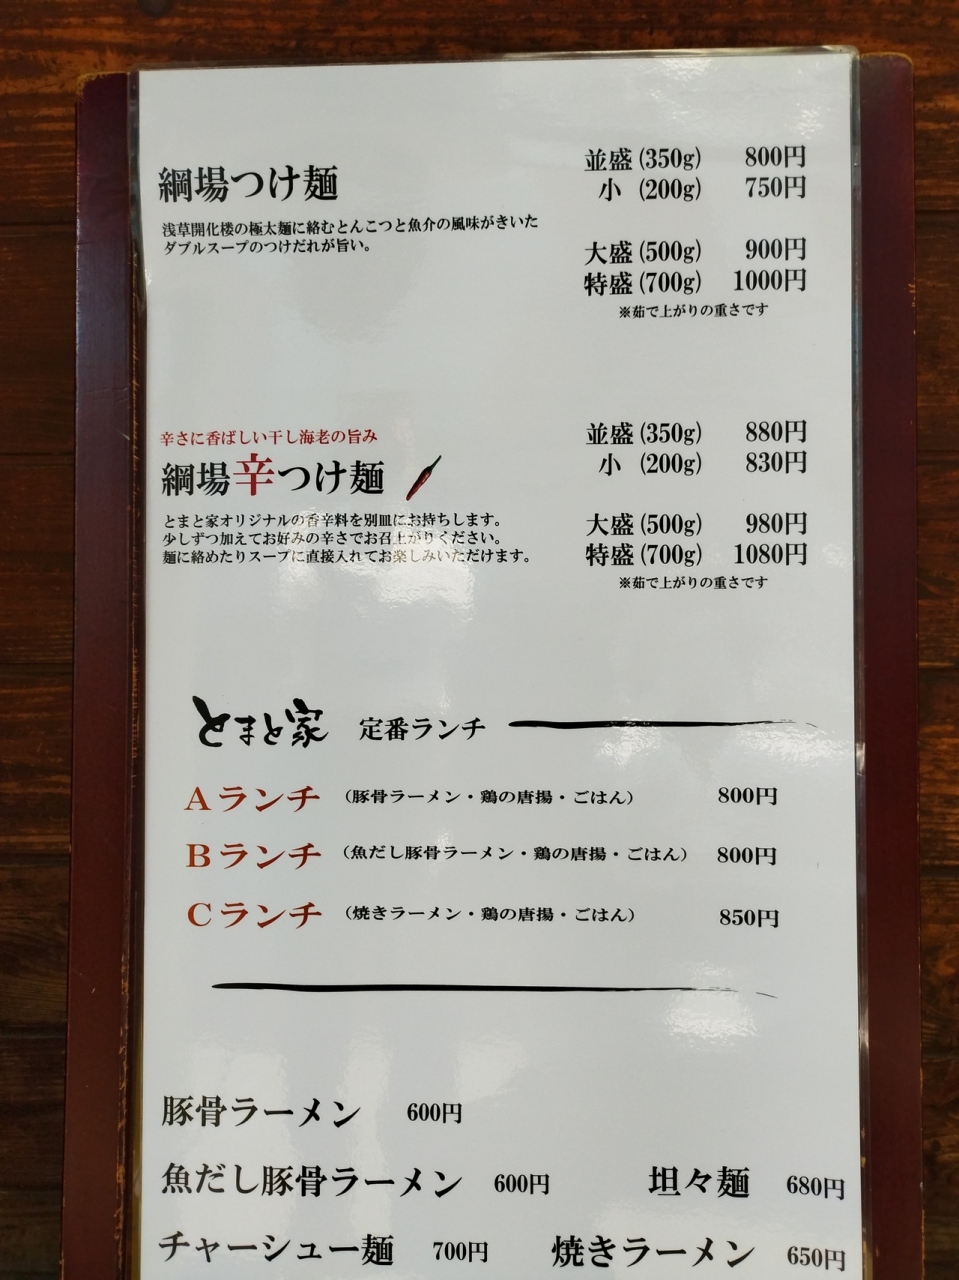 綱場つけ麺
浅草開化楼の極太麺に絡むとんこつと魚介の風味がきいた
ダブルスープのつけだれが旨い。
並盛(350g) 800円
小 (200g) 750円
大盛(500g) 900円
特盛(700g) 1000円
※茹で上がりの重さです
辛さに香ばしい干し海老の旨み
綱場辛つけ麺
とまと家オリジナルの香辛料を別皿にお持ちします。
少しずつ加えてお好みの辛さでお召上がりください。
麺に絡めたりスープに直接入れてお楽しみいただけます。
並盛(350g) 880円
小 (200g) 830円
大盛(500g) 980円
特盛(700g) 1080円
※茹で上がりの重さです
とまと家 定番ランチ
Aランチ (豚骨ラーメン・鶏の唐揚・ごはん) 800円
Bランチ (魚だし豚骨ラーメン・鶏の唐揚・ごはん) 800円
Cランチ (焼きラーメン・鶏の唐揚・ごはん) 850円
豚骨ラーメン 600円
魚だし豚骨ラーメン 600円 坦々麺 680円
チャーシュー麺 700円 焼きラーメン 650円